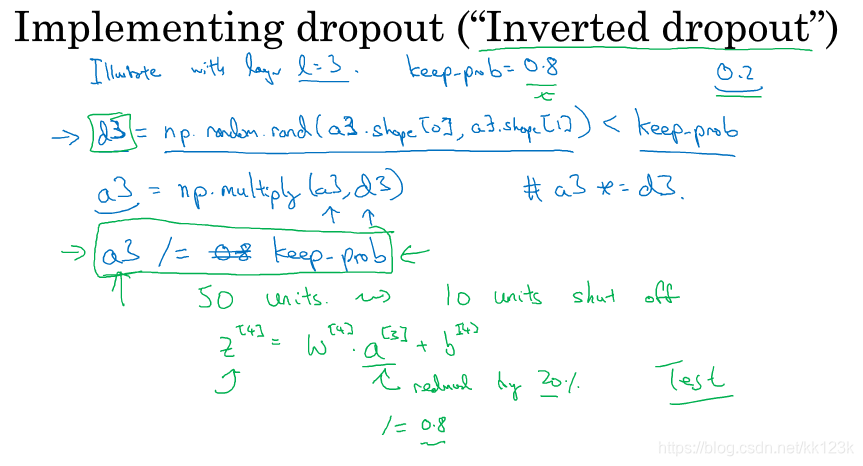 Implementing dropout (“Inverted dropout”)
Illustrate with layer l=3. keep-prob= 0.8 0.2
→ d3 = np.random.rand(a3.shape[0], a3.shape[1]) < keep-prob
a3 = np.multiply(a3, d3) # a3 *= d3.
→ a3 /= 0.8 keep-prob ←
50 units. ⇝ 10 units shut off
z^[4] = W^[4] · a^[3] + b^[4]
reduced by 20%. Test
/= 0.8
https://blog.csdn.net/kk123k